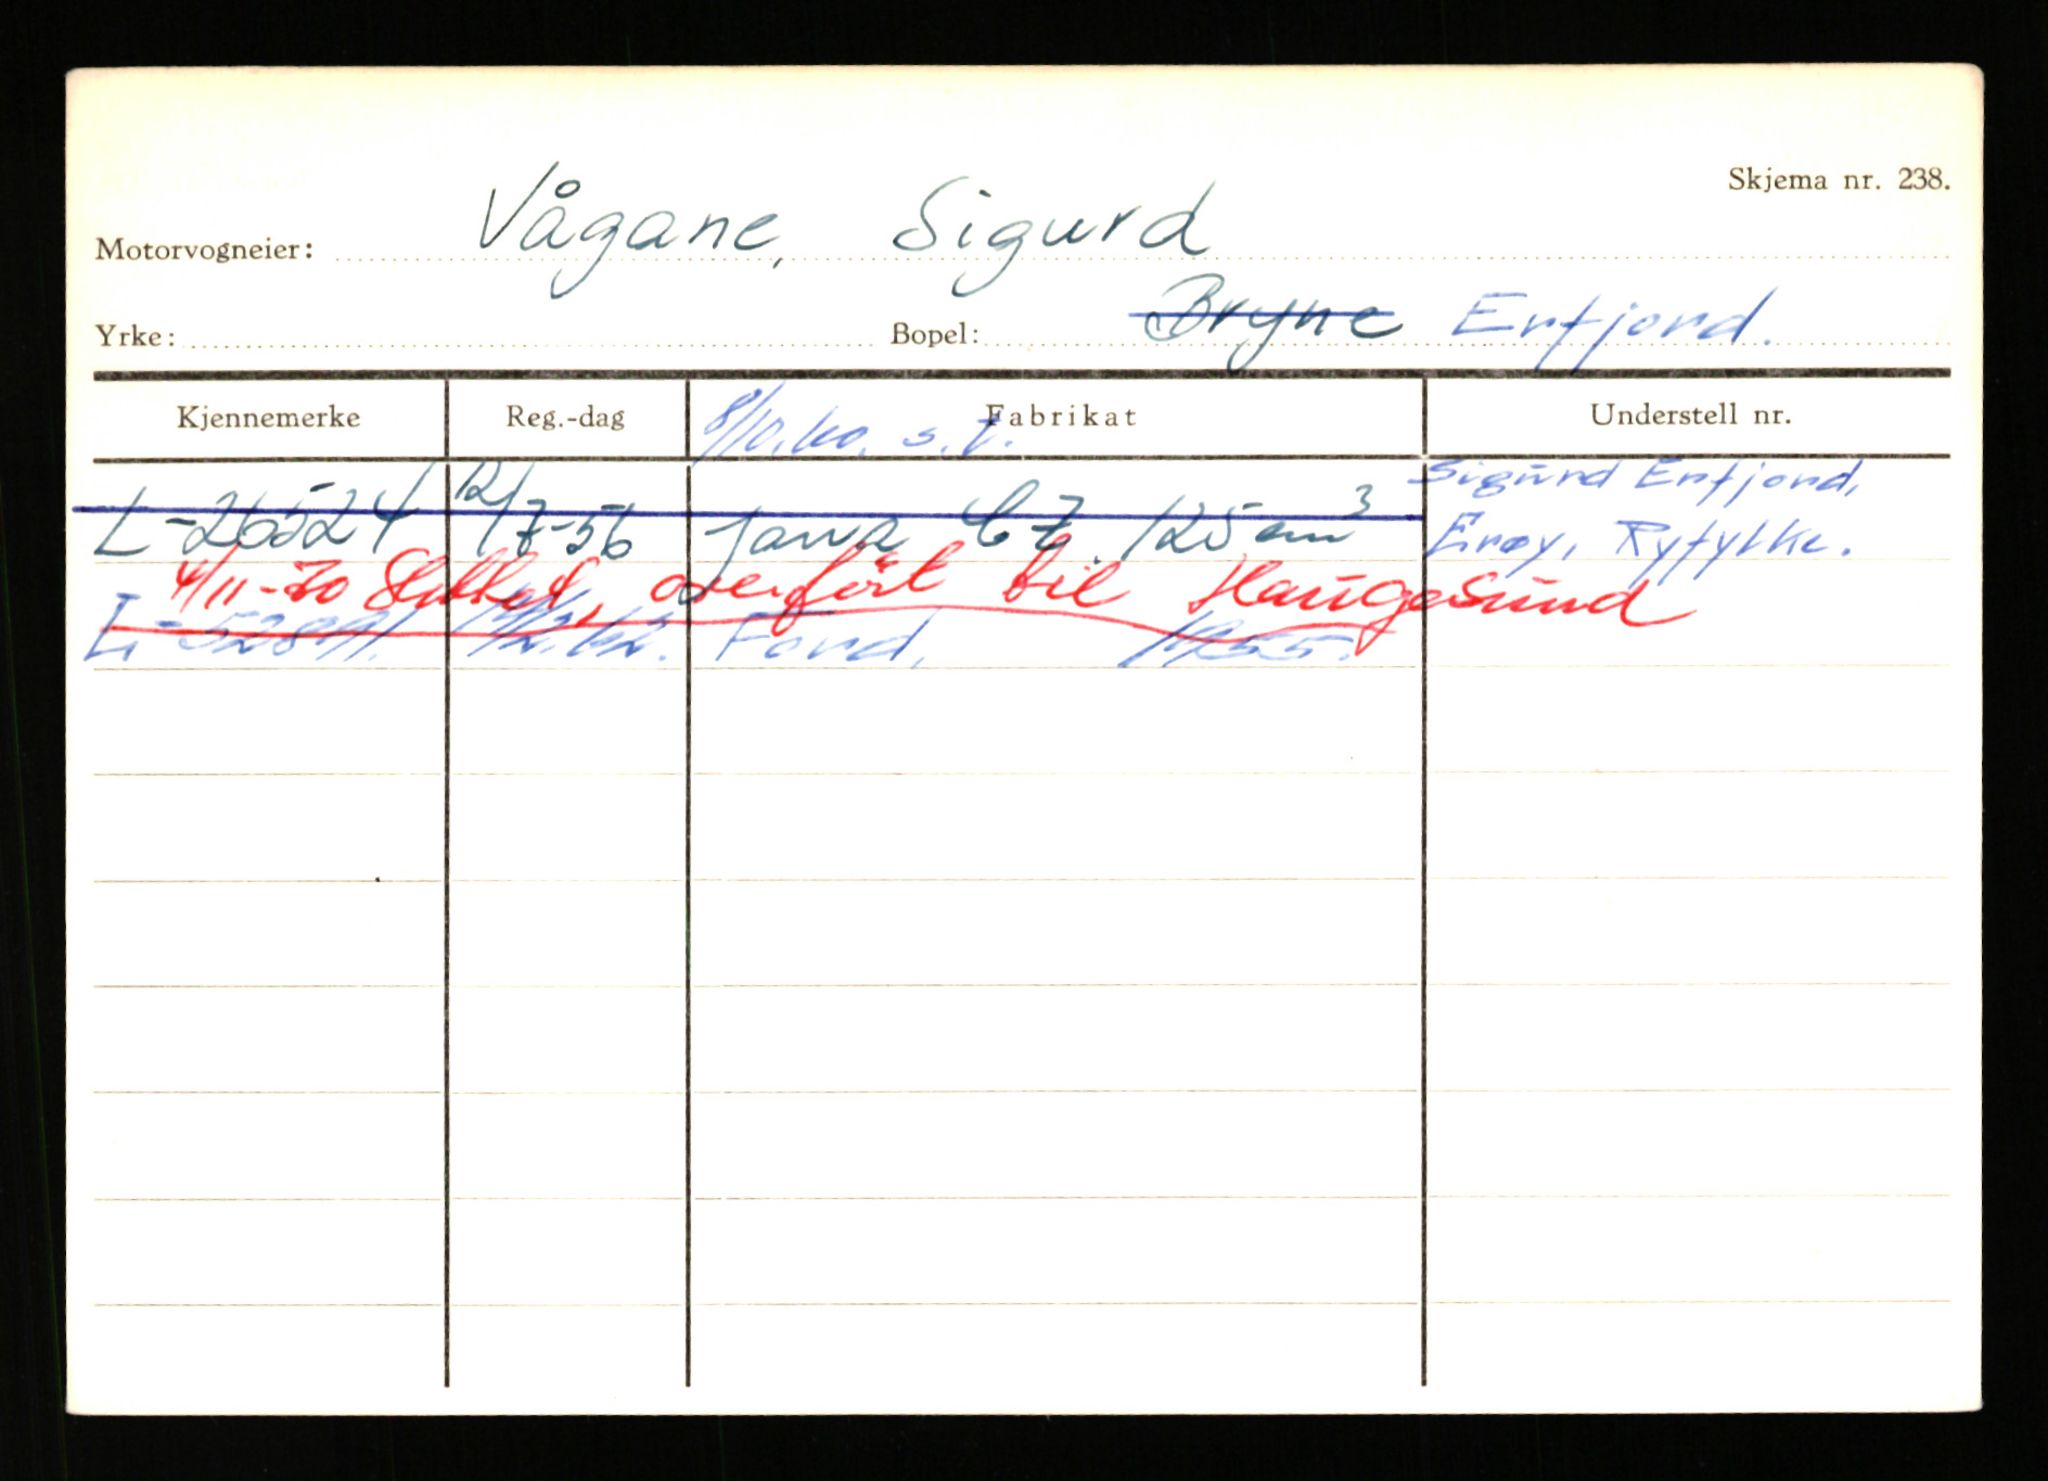 Skjema nr. 238.
Motorvogneier: Vågane, Sigurd
Yrke: Bopel: Bryne Erfjord.
Kjennemerke Reg.-dag Fabrikat Understell nr.
8/10.60. s. t.
Sigurd Erfjord,
L-26524 12/7-56 Jawa CZ. 125 cm³ Erøy, Ryfylke.
4/11-70 Slettet, overført til Haugesund
L-52891. Ford. 1955.